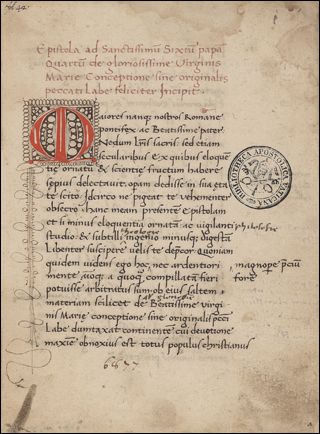 Epistola ad Sanctissimū Sixtū papā
Quartū de gloriosissime Virginis
Marie Conceptione sine originalis
peccati Labe feliciter Incipit
Maiores nanqȝ nostros Romane
pontifex ac Beatissime pater
Nedum sacris sed etiam
secularibus ex quibus
tic ornatū & scientie fructum habere
sepius delectavit opam dedisse in sua eta
te scito Idcirco ne pigeat te vehementer
obsecro hanc meam presentē epistolam
et si minus eloquentia ornatā ac vigilanti philosophie
studio & subtili ingenio minusqȝ digestā
Libenter suscipere velis te deprecor quoniam
quidem videns ego hoc nec ardentiori magnopere
mente a quoqȝ compillatā fieri fore
potuisse arbitratus sum ob eius saltem
materiam scilicet de Beatissime virgi
nis Marie conceptione sine originalis pcci
Labe dumtaxat continentē cui devotione
maxīe obnoxius est totus populus christianus
6877
BIBLIOTHECA APOSTOLICA VATICANA